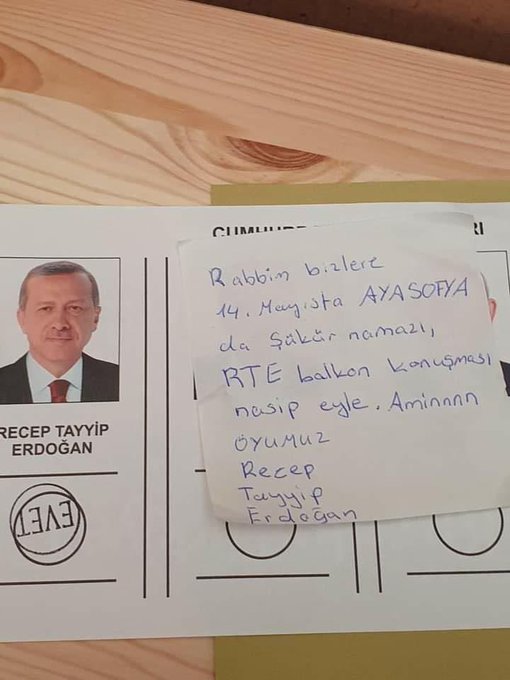 CUMHURB
RI
Rabbim bizlere
14. Mayısta AYASOFYA
da Şükür namazı,
RTE balkon konuşması
nasip eyle. Aminnnn
OYUMUZ
Recep
Tayyip
Erdoğan
RECEP TAYYİP
ERDOĞAN
EVET